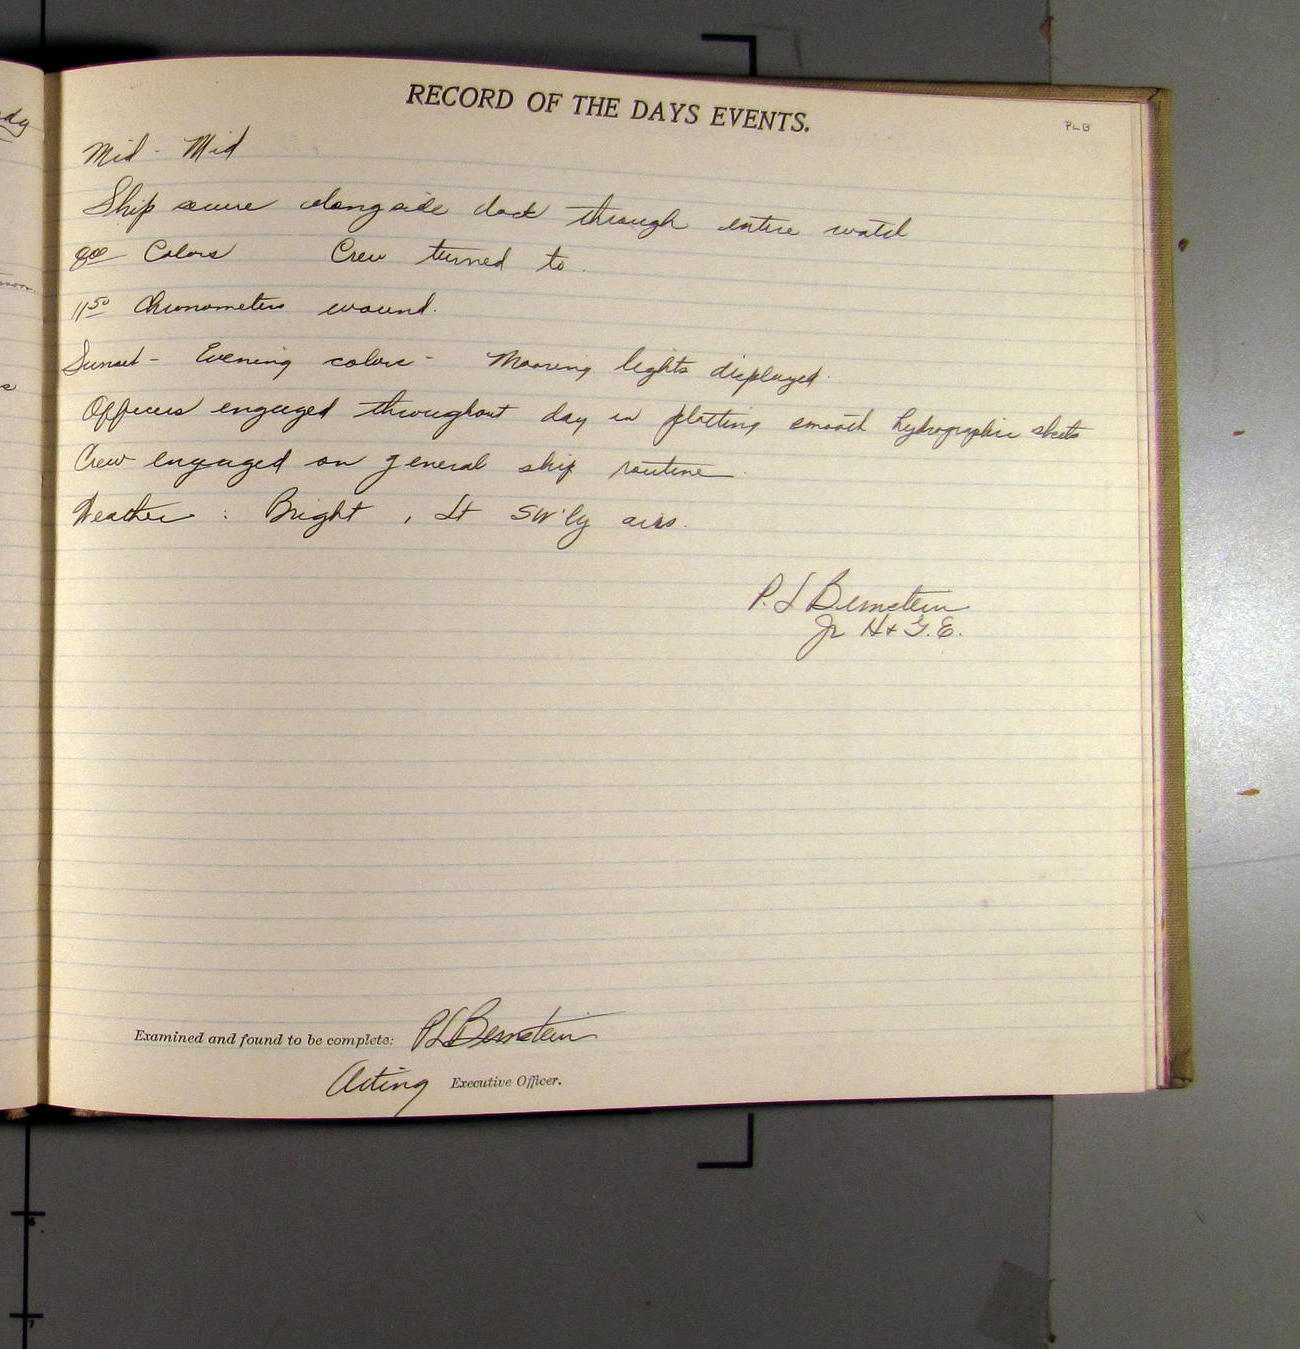 RECORD OF THE DAYS EVENTS.
PLB
Mid - Mid
Ship secure alongside dock through entire watch
800 Colors Crew turned to.
1150 Chronometers wound.
Sunset - Evening colors - Mooring lights displayed.
Officers engaged throughout day in plotting smooth hydrographic sheets
Crew engaged on general ship routine.
Weather : Bright , Lt SW'ly airs.
P. L Bernstein
Jr H & G. E.
Examined and found to be complete: PL Bernstein
Acting Executive Officer.
6
7